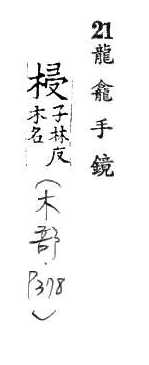 21龍龕手鏡
梫子林反木名(木部·P378)